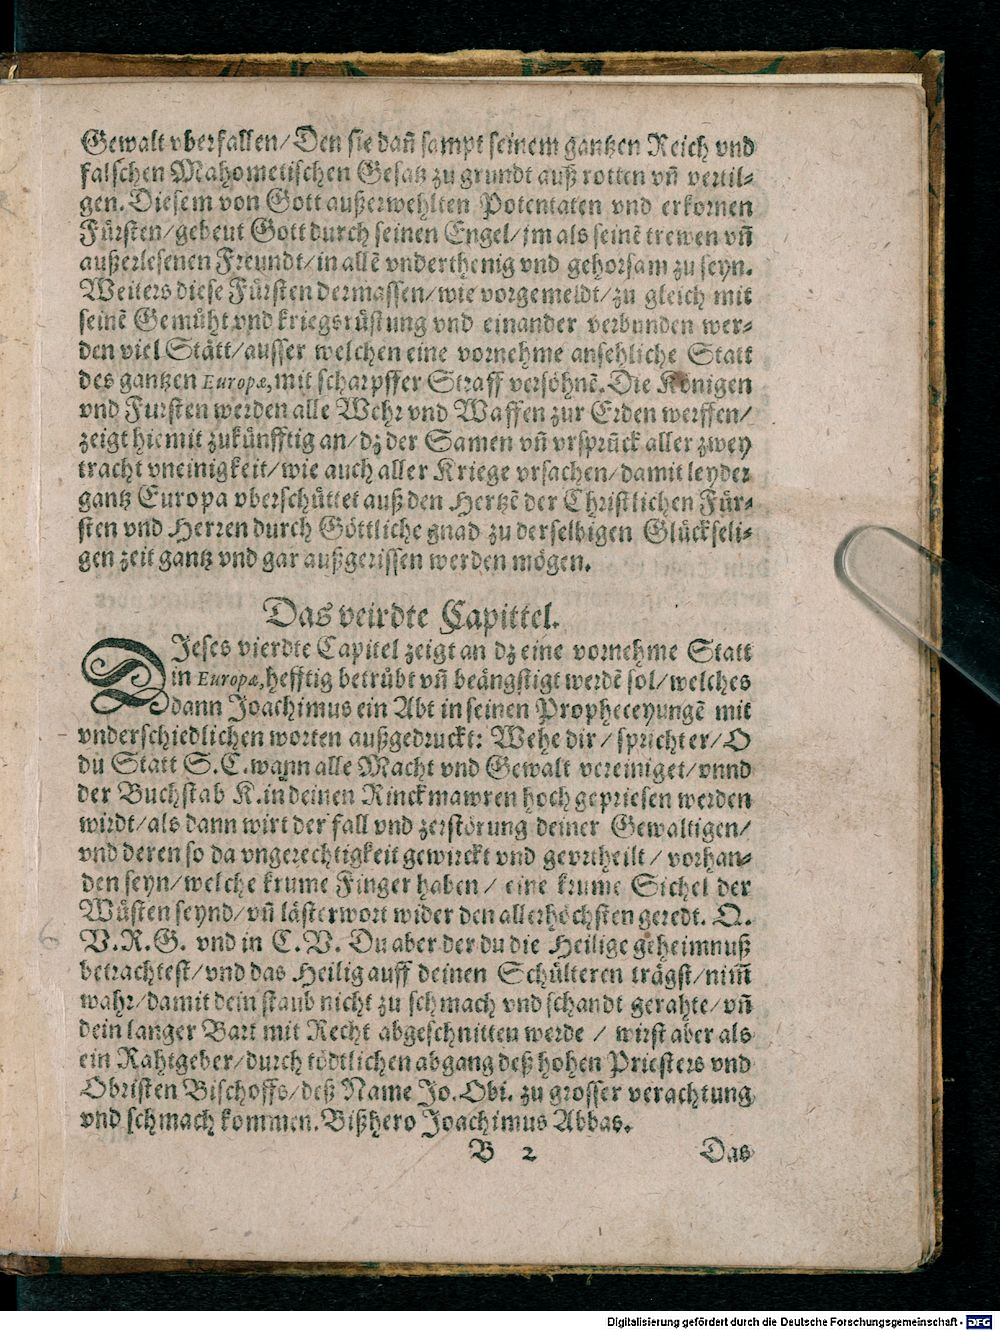 Gewalt vberfallen/Den sie dañ sampt seinem gantzen Reich vnd
falschen Mahometischen Gesatz zu grundt auß rotten vñ vertil-
gen. Diesem von Gott außerwehlten Potentaten vnd erkornen
Fürsten/gebeut Gott durch seinen Engel/jm als seinẽ trewen vñ
außerlesenen Freundt/in allẽ vnderthenig vnd gehorsam zu seyn.
Weiters diese Fürsten dermassen/wie vorgemeldt/zu gleich mit
seinẽ Gemüht vnd kriegsrüstung vnd einander verbunden wer-
den viel Stätt/ausser welchen eine vornehme ansehliche Statt
des gantzen Europæ, mit scharpffer Straff versöhnẽ. Die Königen
vnd Fursten werden alle Wehr vnd Waffen zur Erden werffen/
zeigt hiemit zukünfftig an/dz der Samen vñ vrsprũck aller zwey
tracht vneinigkeit/wie auch aller Kriege vrsachen/damit leyder
gantz Europa vberschüttet auß den Hertzẽ der Christlichen Für-
sten vnd Herren durch Göttliche gnad zu derselbigen Glückseli-
gen zeit gantz vnd gar außgerissen werden mögen.
Das veirdte Capittel.
DJeses vierdte Capitel zeigt an dz eine vornehme Statt
in Europæ, hefftig betrübt vñ beängstigt werdẽ sol/welches
dann Joachimus ein Abt in seinen Propheceyungẽ mit
vnderschiedlichen worten außgedruckt: Wehe dir/sprichter/O
du Statt S. C. wann alle Macht vnd Gewalt vereiniget/vnnd
der Buchstab K. in deinen Rinckmawren hoch gepriesen werden
wirdt/als dann wirt der fall vnd zerstörung deiner Gewaltigen/
vnd deren so da vngerechtigkeit gewirckt vnd gevrtheilt/vorhan-
den seyn/welche krume Finger haben/eine krume Sichel der
Wüsten seynd/vñ lästerwort wider den allerhöchsten geredt. O.
V. R. G. vnd in C. V. Du aber der du die Heilige geheimnuß
betrachtest/vnd das Heilig auff deinen Schülteren trägst/nim̃
wahr/damit dein staub nicht zu schmach vnd schandt gerahte/vñ
dein langer Bart mit Recht abgeschnitten werde / wirst aber als
ein Rahtgeber/durch tödtlichen abgang deß hohen Priesters vnd
Obristen Bischoffs/deß Name Jo. Obi. zu grosser verachtung
vnd schmach kommen. Bißhero Joachimus Abbas.
B 2 Das
6
Digitalisierung gefördert durch die Deutsche Forschungsgemeinschaft - DFG